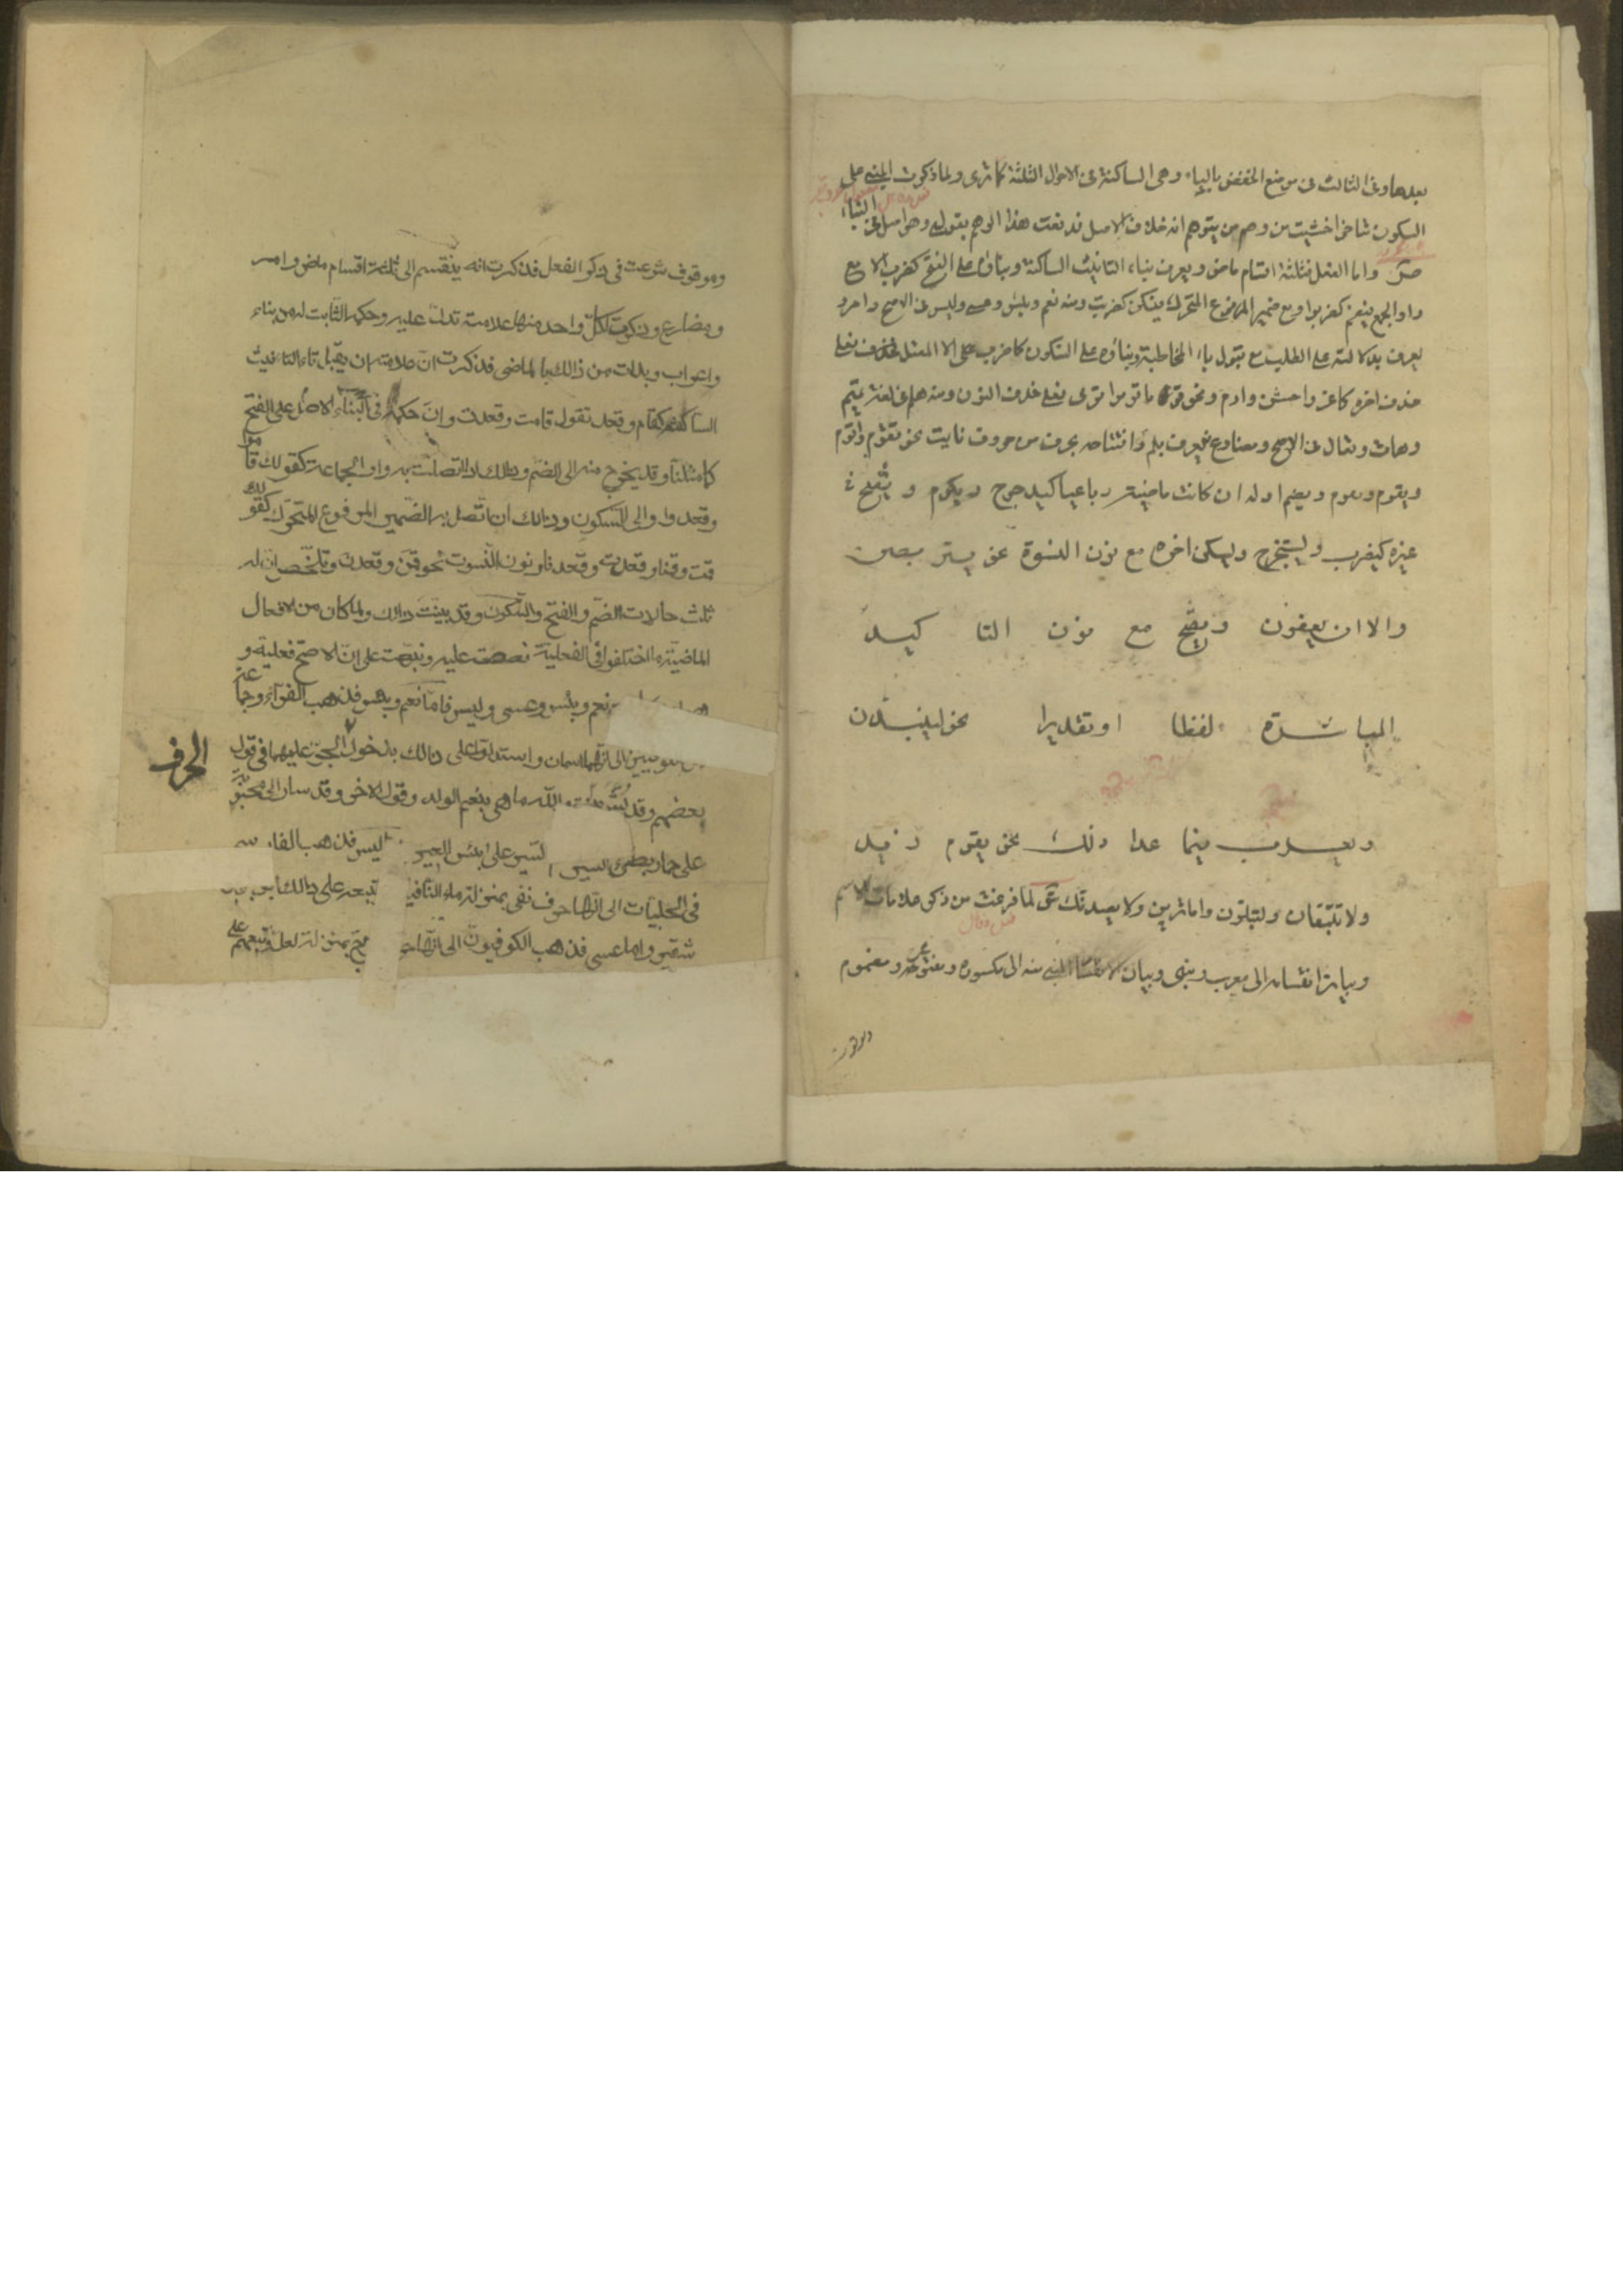 بعدها وفى الثالث فى موضع الخفض بالياء وهى الساكنة فى الاحوال الثلثة كما ترى ولما ذكرت المبنى على
السكون شاخرا خشيت من وهم من يتوهم انه خلاف الاصل فدفعت هذا الوهم بقولى وهو اصل
البناء
ص واما الفعل فثلثة اقسام ماض ويعرف بتاء التانيث الساكنة وبناؤه على الفتح كضرب الا مع
واو الجمع فيضم كضربوا ومع ضمير المرفوع المتحرك فيسكن كضربت ومنه نعم وبئس وعسى وليس فى الاصح وامر و
يعرف بدلالته على الطلب مع قبول ياء المخاطبة وبناؤه على السكون كاضرب الا المعتل فعلى
حذف اخره كاغز واخش وارم ونحو قوما قوموا قومى فعلى حذف النون ومنه هلم فى لغة تميم
وهات وتعال فى الاصح ومضارع فيعرف بلم وافتتاحه بحرف من حروف نايت نحو نقوم واقوم
ويقوم وتقوم ويضم اوله ان كانت ماضيه رباعيا كيدحرج ويكرم ويفتح فى
غيره كيضرب ويستخرج ويسكن اخره مع نون النسوة نحو يتربصن
والا ان يعفون ويفتح مع نون التا كيد
المباشرة لفظا او تقديرا نحو لينبذن
ويعرب فيما عدا ذلك نحو يقوم زيد
ولا تتبعان ولتبلون واما ترين ولا يصدنك ش لما فرغت من ذكر علامات الاسم
وبيان انقسامه الى معرب ومبنى وبيان انقسام المبنى منه الى مكسور ومفتوح ومضموم
وموقوف
وموقوف شرعت فى ذكر الفعل فذكرت انه ينقسم الى ثلثة اقسام ماض وامر
ومضارع وذكرت لكل واحد منها علامته تدل عليه وحكمه الثابت له من بناء
واعراب وبدات من ذالك بالماضى فذكرت ان علامته ان يقبل تاء التانيث
الساكنة كقام وقعد تقول قامت وقعدت وان حكمه فى البناء الاصل على الفتح
كما مثلنا وقد يخرج منه الى الضم وذلك اذا اتصلت به واو الجماعة كقولك قاموا
وقعدوا والى السكون وذالك اذا اتصل به الضمير المرفوع المتحرك كقولك
قمت وقمنا وقعدت وقعدنا ونون النسوة نحو قمن وقعدن وتلخص ان له
ثلث حالات الضم والفتح والسكون وقد بينت ذالك ولما كان من الافعال
الماضية ما اختلفوا فى الفعلية نصصت عليه ونبهت على ان الاصح فعليته و
نعم وبئس وعسى وليس فاما نعم وبئس فذهب الفراء وجماعة
الى انهما اسمان واستدلوا على ذالك بدخول الجر عليهما فى قول
بعضهم وقد بشر الله ما هى بنعم الولد وقول الاخر وقد سار الى محبوبته
على حمار بطىء السير السير على بئس العير ليس فذهب الفا
فى الحلبيات الى انها حرف نفى بمنزلة ما النافية تبعه على ذالك ابو بكر
شقير واما عسى فذهب الكوفيون الى انها حرف ترج بمنزلة لعل وتبعهم على
الحرف